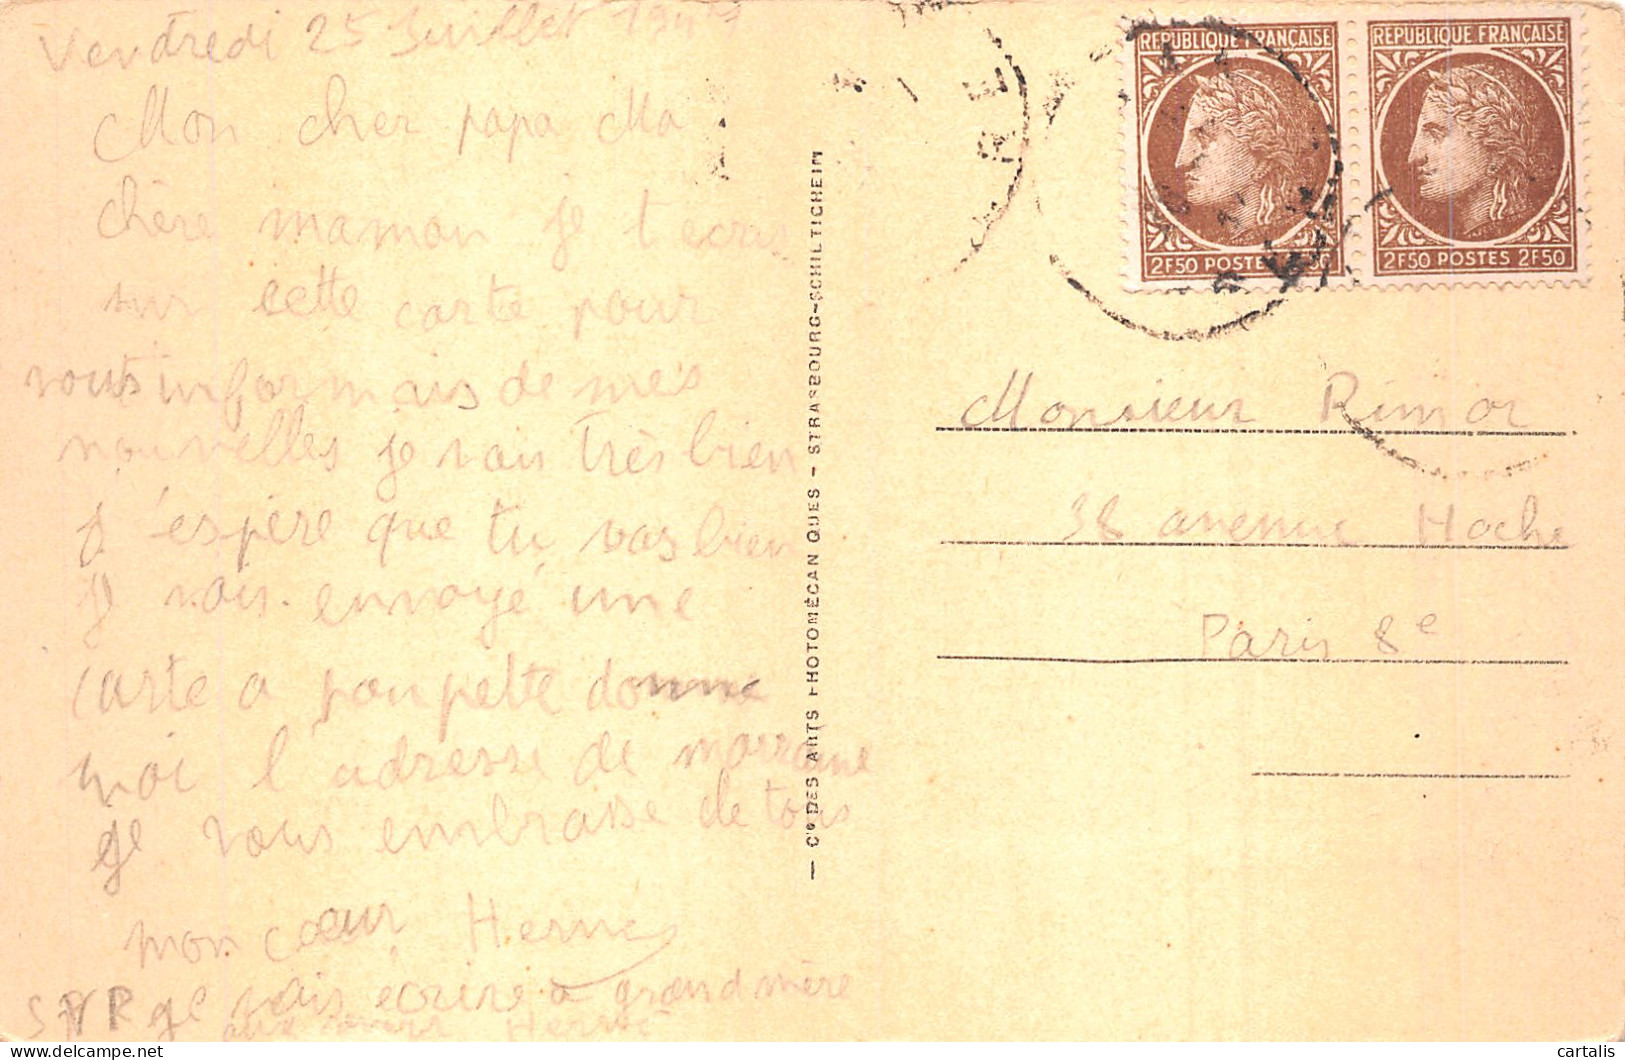 Vendredi 25 Juillet 1947
Mon cher papa Ma
chère maman je t'ecris
sur cette carte pour
vous informais de mes
nouvelles je vais très bien
j'espère que tu vas bien
Je vais envoyé une
carte a poupette donne
moi l'adresse de marraine
je vous embrasse de tous
mon cœur Hervé
je vais écrire a grand mère
Hervé
— Cie DES ARTS PHOTOMÉCANIQUES - STRASBOURG-SCHILTICHEIM
REPUBLIQUE FRANÇAISE
2F50 POSTES
REPUBLIQUE FRANÇAISE
2F50 POSTES 2F50
Monsieur Rimor
38 avenue Hoche
Paris 8e
cartalis